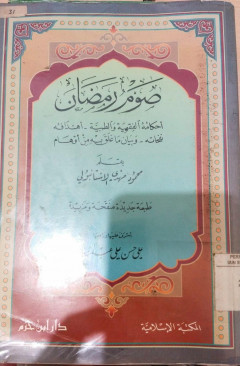 صوم رمضان
أحكامه الفقهية والطبية - أهدافه
نفحاته - وبيان ما علق به من أوهام
بقلم
محمود مهدي الاستانبولي
طبعة جديدة منقحة ومزيدة
علي حسن علي
المكتبة الإسلامية
دار ابن حزم